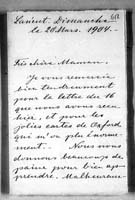 Dimanche
le 20 Mars. 1904.
Très chère Maman.
Je vous remercie
bien tendrement
pour la lettre du 16
que nous avons reçu
hier, et pour les
jolies cartes de Oxford
qui m'a plu énormé-
ment. Nous nous
donnons beaucoup de
peine pour bien ap-
prendre. Malheureu-